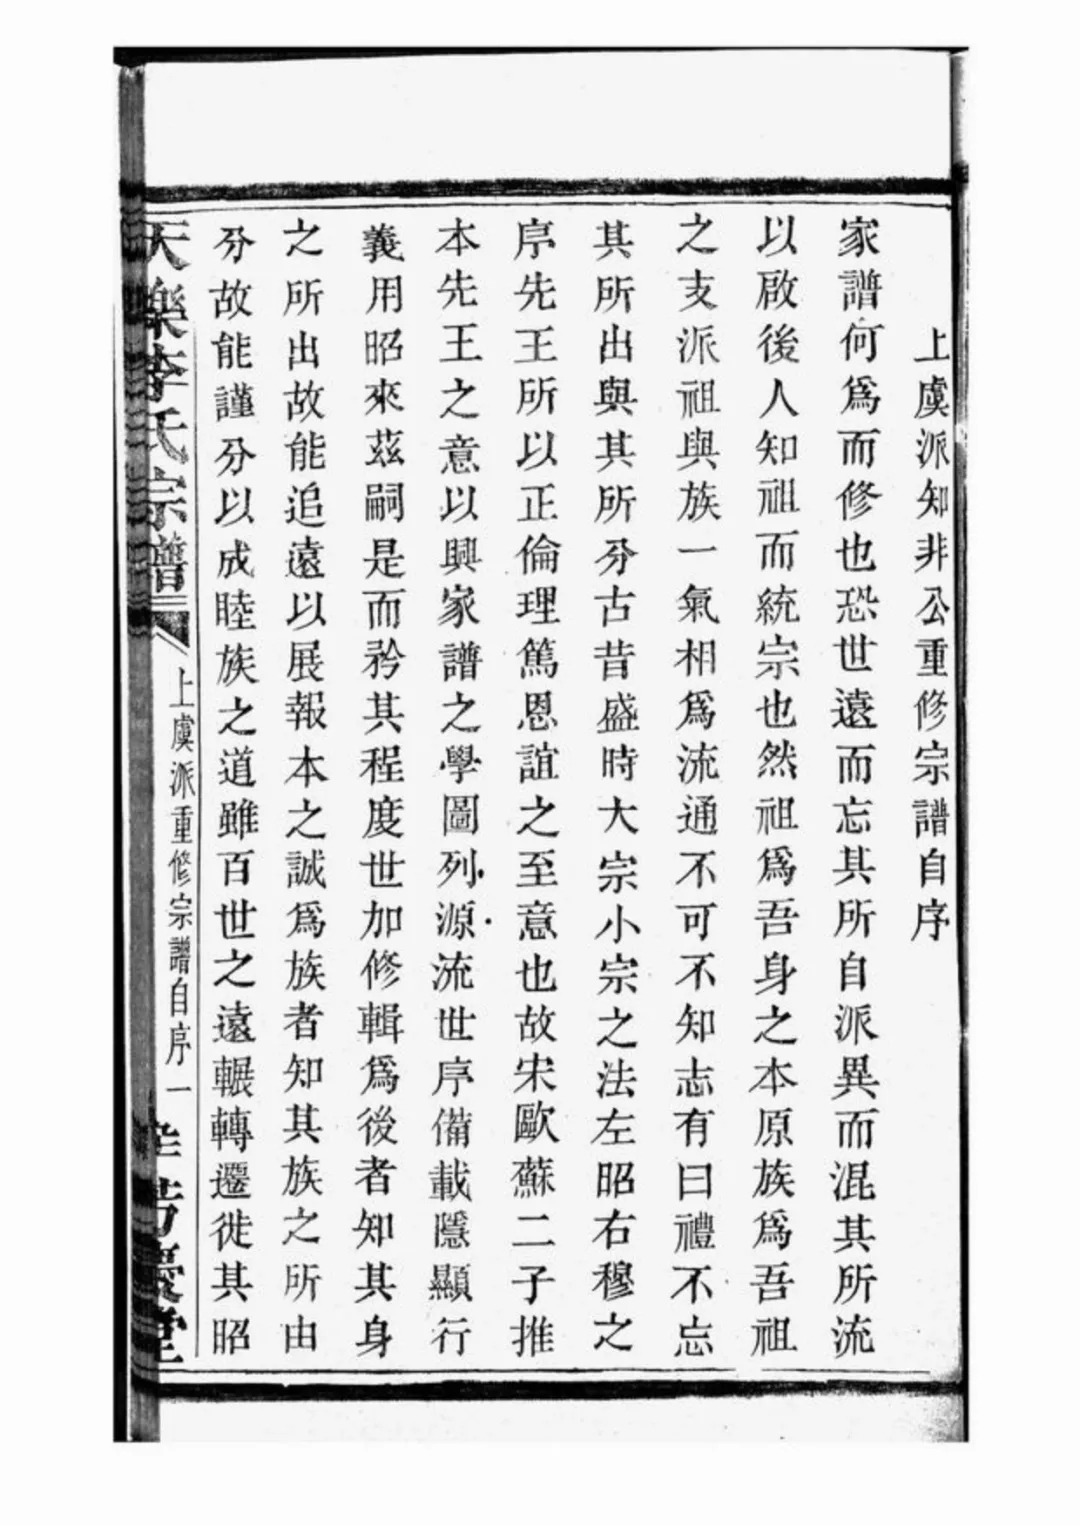 上虞派知非公重修宗譜自序
家譜何爲而修也恐世遠而忘其所自派異而混其所流
以啟後人知祖而統宗也然祖爲吾身之本原族爲吾祖
之支派祖與族一氣相爲流通不可不知志有曰禮不忘
其所出與其所分古昔盛時大宗小宗之法左昭右穆之
序先王所以正倫理篤恩誼之至意也故宋歐蘇二子推
本先王之意以興家譜之學圖列源流世序備載隱顯行
義用昭來茲嗣是而矜其程度世加修輯爲後者知其身
之所出故能追遠以展報本之誠爲族者知其族之所由
分故能謹分以成睦族之道雖百世之遠輾轉遷徙其昭
天樂李氏宗譜
上虞派重修宗譜自序一
芳慶堂